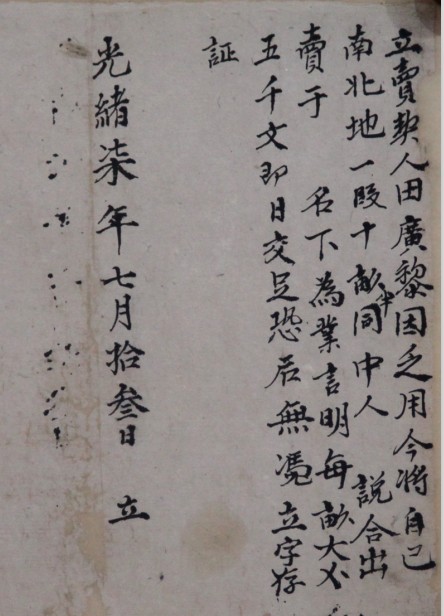 立賣契人田廣黎因乏用今將自己
南北地一段十畝半同中人 說合出
賣于 名下為業言明每畝大不
五千文即日交足恐后無憑立字存
証
光緒柒年七月拾叁日 立